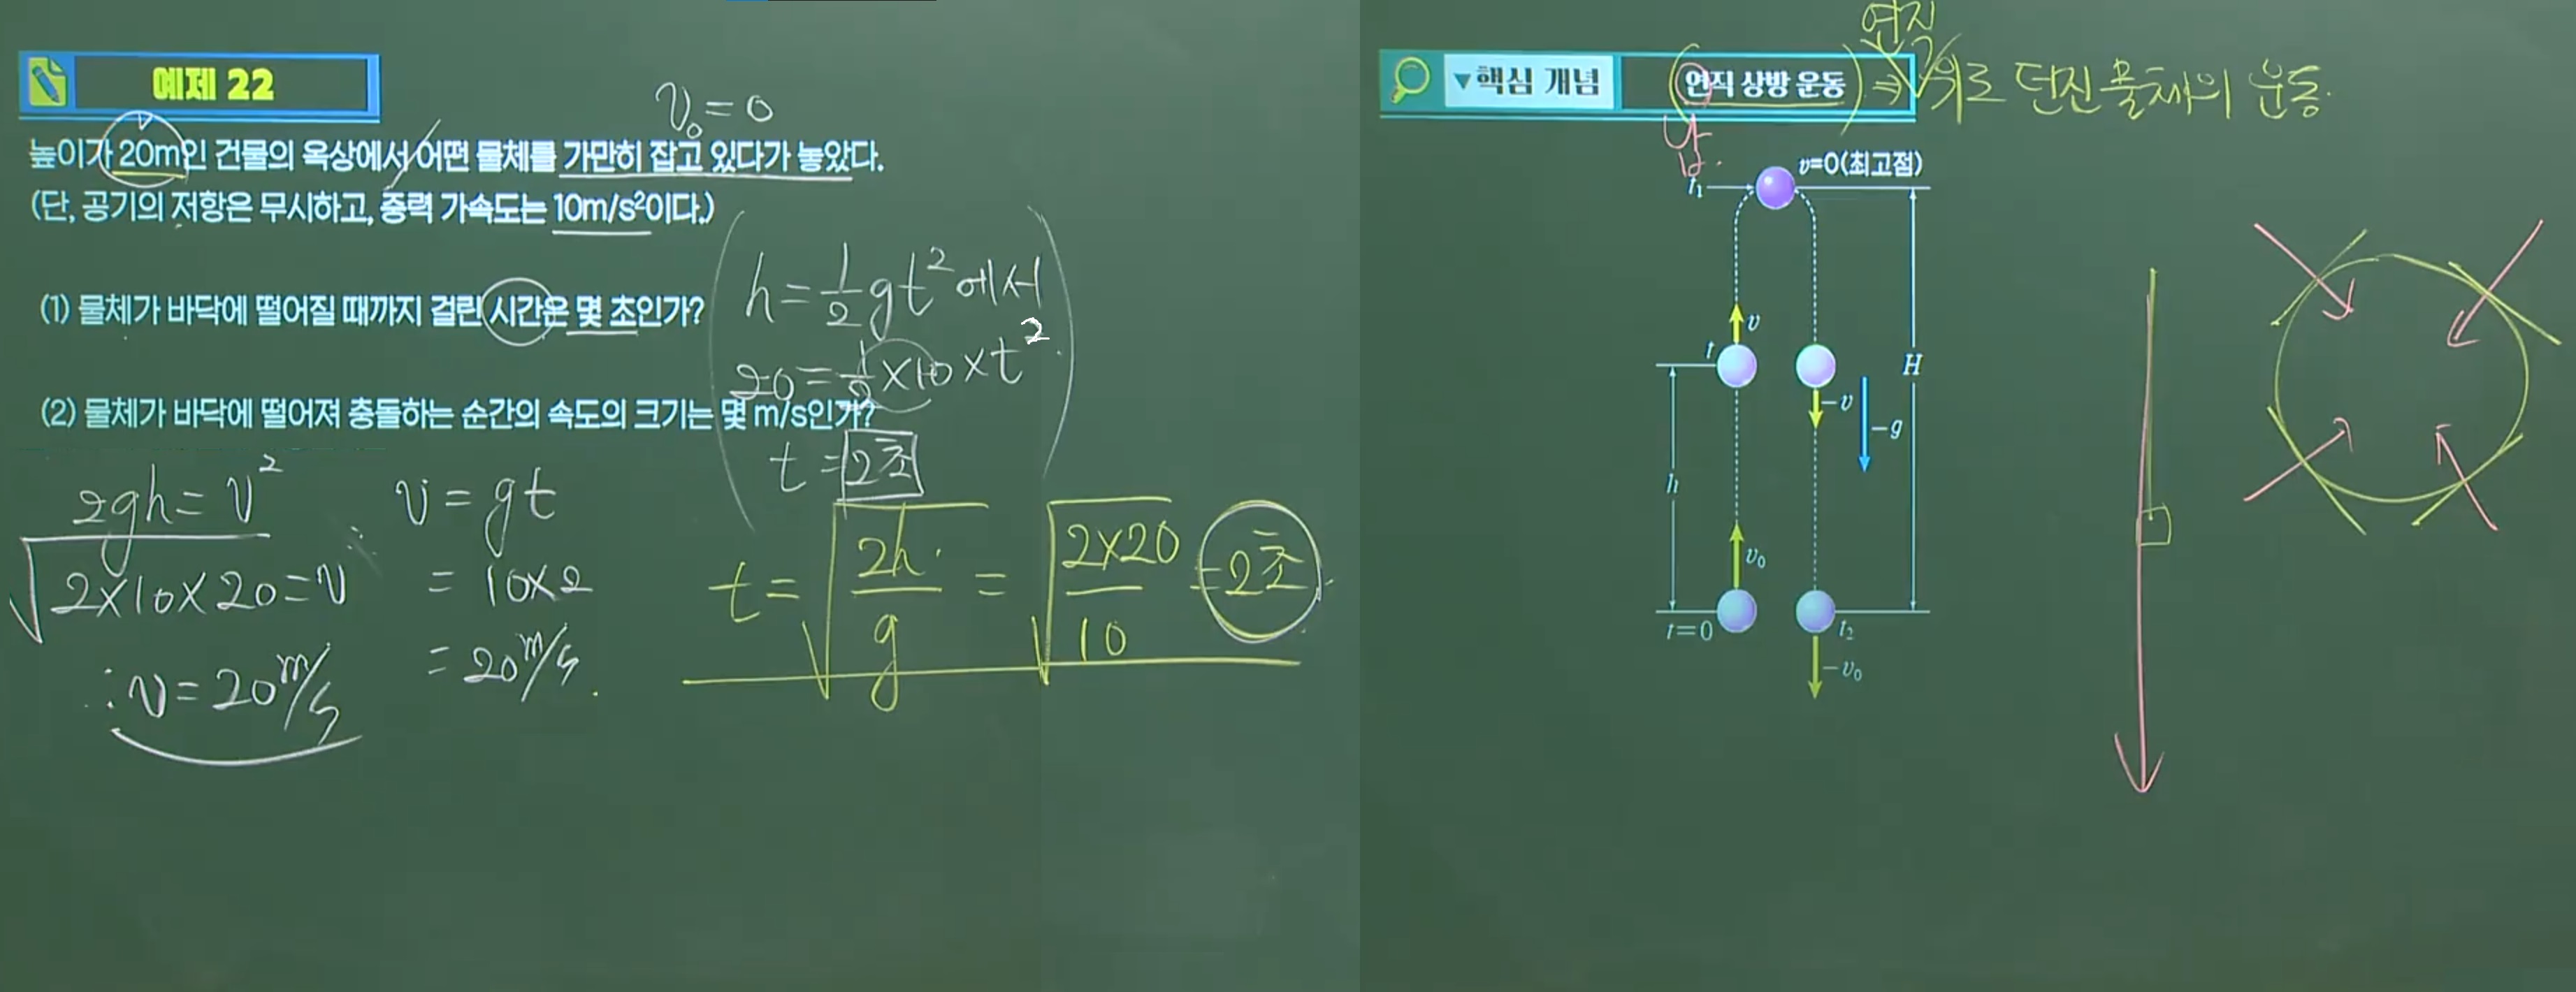 예제 22
v₀=0
높이가 20m인 건물의 옥상에서 어떤 물체를 가만히 잡고 있다가 놓았다.
(단, 공기의 저항은 무시하고, 중력 가속도는 10m/s²이다.)
(1) 물체가 바닥에 떨어질 때까지 걸린 시간은 몇 초인가?
(2) 물체가 바닥에 떨어져 충돌하는 순간의 속도의 크기는 몇 m/s인가?
h=½gt²에서
20=½×10×t²
t=2초
2gh=v²
√2×10×20=v
∴v=20m/s
v=gt
=10×2
=20m/s.
t=√2h/g=√2×20/10=2초
▼핵심 개념
(연직 상방 운동)⇒위로 던진 물체의 운동.
연직
v=0(최고점)
t₁
v
t
H
-v
-g
h
v₀
t=0
t₂
-v₀